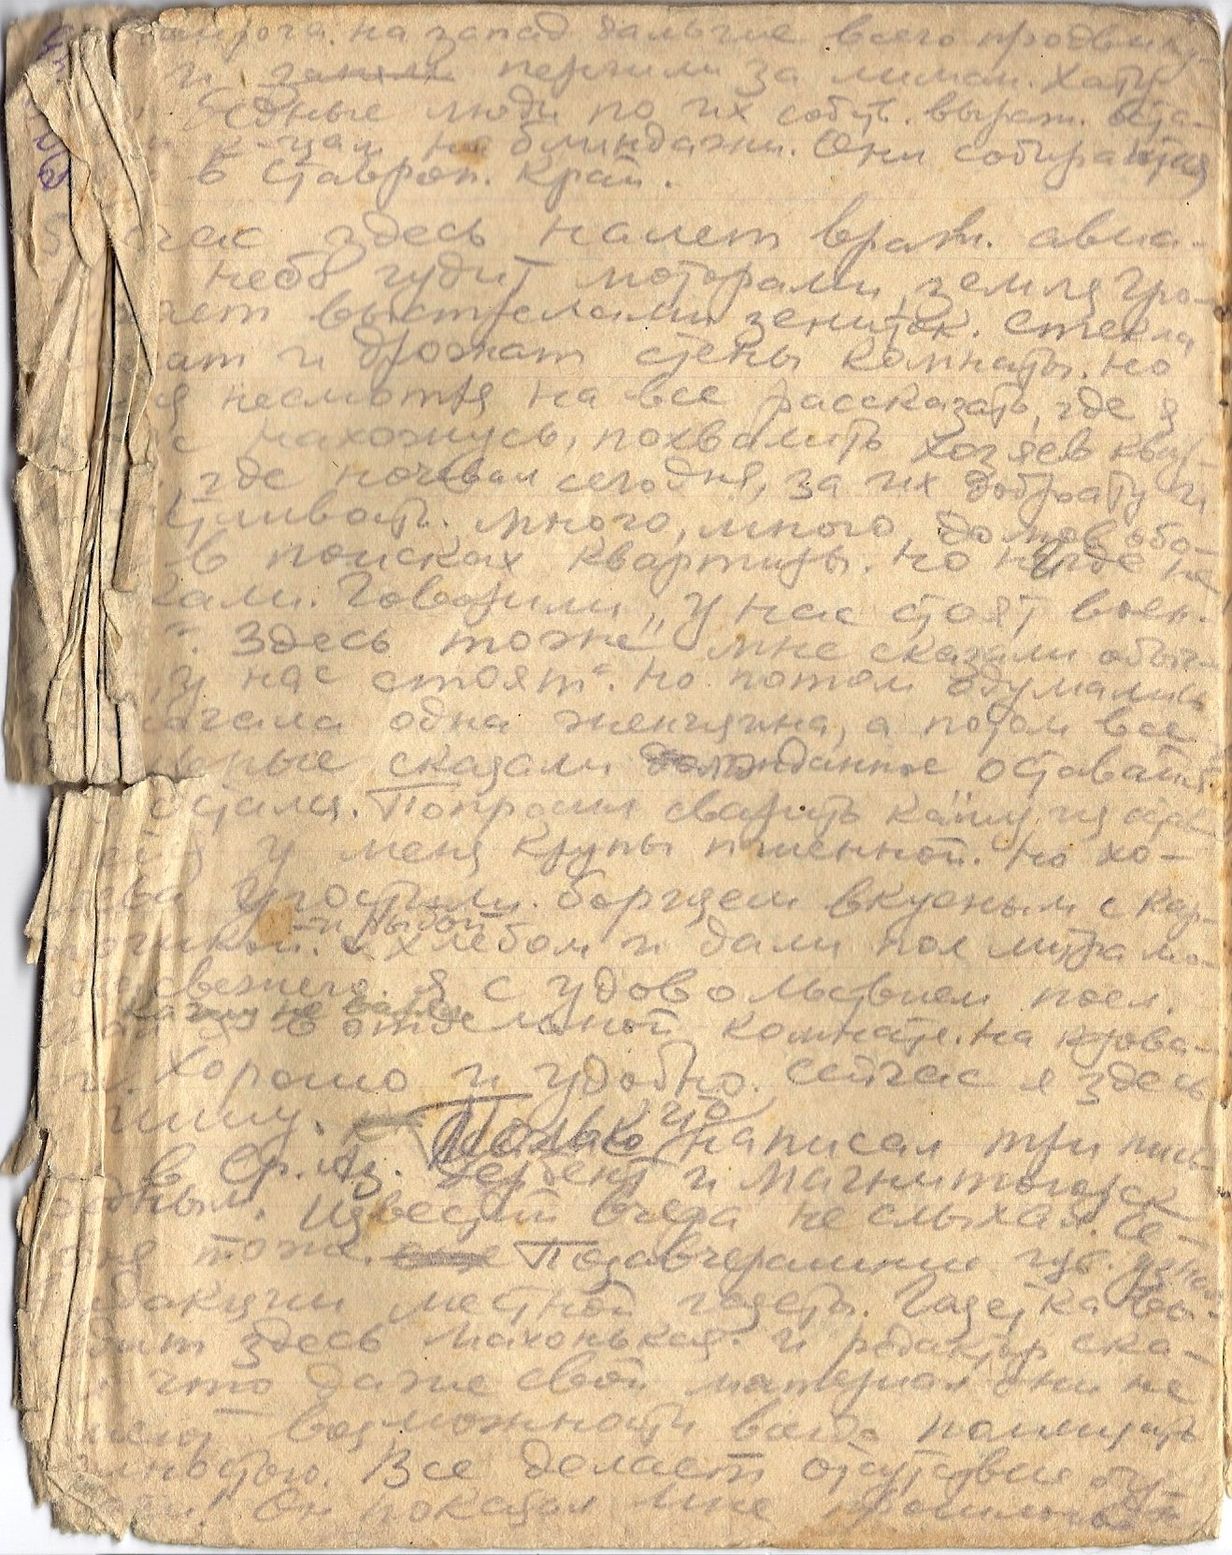 на запад дальше всего продвину-
и заняли перчили за лиман. Хату
бедные люди по их собств. выраж. оста-
цам на блиндажи. Они собираются
в Ставроп. край.
здесь налет враж. авиа-
небо гудит моторами, земля гро-
хает выстрелами зениток. Стекла
ат и дрожат стены комнаты. Но
я несмотря на все рассказать, где я
с нахожусь, похвалить хозяев квар-
, где ночевал сегодня, за их доброту и
тливость. Много, много домов обо-
в поисках квартиры. Но нигде не
кали. Говорили „у нас стоят воен-
. Здесь тоже мне сказали обыч-
„у нас стоят". Но потом одумались
начала одна женщина, а потом все
орые сказали долгожданное оставайся
остался. Попросил сварить кашу из
ейся у меня крупы пшенной. Но хо-
зяева угостили борщем вкусным с кар-
и рыбой
тошкой. с хлебом и дали пол литра мо-
лока свежего. Я с удовольствием поел.
кашу не варил
в отдельной комнате. на крова-
ти. Хорошо и удобно. Сейчас я здесь
пишу. Только что написал три пись-
в Ср. Аз. Дербент и Магнитогорск
родным. Известий вчера не слыхал. Се-
дня тоже. Позавчерашние узнал
редакции местной газеты. Газетка вы-
дит здесь махонькая. и редактор ска-
что даже свой материал они не
имеют возможности всегда помещать
лностью. Все делает отсутствие бу-
маги! Он показал мне